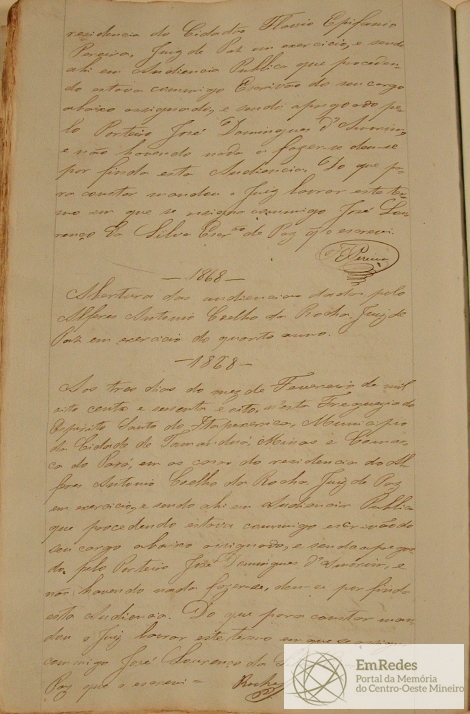 residencia do Cidadão Flavio Epifanio
Pereira, Juiz de Paz em exercicio, e sendo
ahi em Audiencia Publica que proceden-
do estava commigo Escrivão do seu cargo
abaixo assignado, e sendo apregoado pe-
lo Porteiro José Domingues d'Amorim
e não havendo nada a fazer-se deu-se
por finda esta Audiencia. Do que pa-
ra constar mandou o Juiz lavrar este ter-
mo em que se assigna commigo José Lou-
renço da Silva Escrᵃᵒ de Paz q̃ o escrevi.
F E Pereira
— 1868 —
Abertura das audiencias dadas pelo
Alferes Antonio Coelho da Rocha, Juiz de
Paz em exercicio do quarto anno.
— 1868 —
Aos tres dias do mez de Fevereiro de mil
oito centos e sessenta e oito, nesta Freguezia do
Espirito Santo de Itapecerica, Municipio
da Cidade de Tamanduá, Minas e Comar-
ca do Pará, em as casas da residencia do Al-
feres Antonio Coelho da Rocha, Juiz de Paz
em exercicio, e sendo ahi em Audiencia Publica
que procedendo estava commigo escrivão do
seu cargo abaixo assignado, e sendo aprego-
da pelo Porteiro José Domingues d'Amorim, e
não havendo nada fazer-se, deu-se por finda
esta Audiencia. Do que para constar man-
dou o Juiz lavrar este termo em que se assigna
commigo José Lourenço da
Paz que o escrevi — Rocha
EmRedes
Portal da Memória
do Centro-Oeste Mineiro